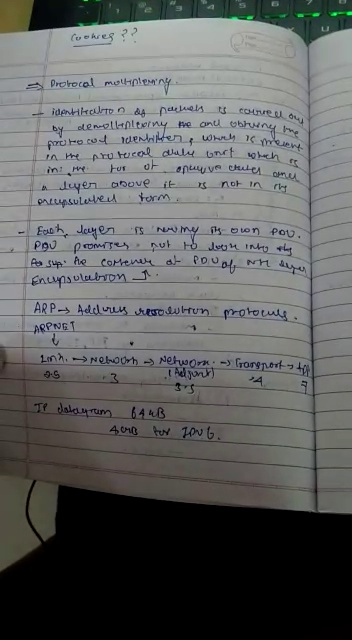 Cookies??
⇒ Protocol multiplexing.
- identification of packets is carried out
by demultiplexing the and obtaining the
protocol identifier, which is present
in the protocol data unit which is
in the for of opaque data and
a layer above it is not in its
encapsulated form.
- Each layer is having its own PDU.
PDU promises not to look into its
the content of PDU of Nth layer
Encapsulation
ARP → Address resolution protocols.
ARPNET
Link. → Network → Network → Transport → App
(Adjunt)
2.5 3 3.5 4 7
IP datagram 64KB
4GB for IPV6.